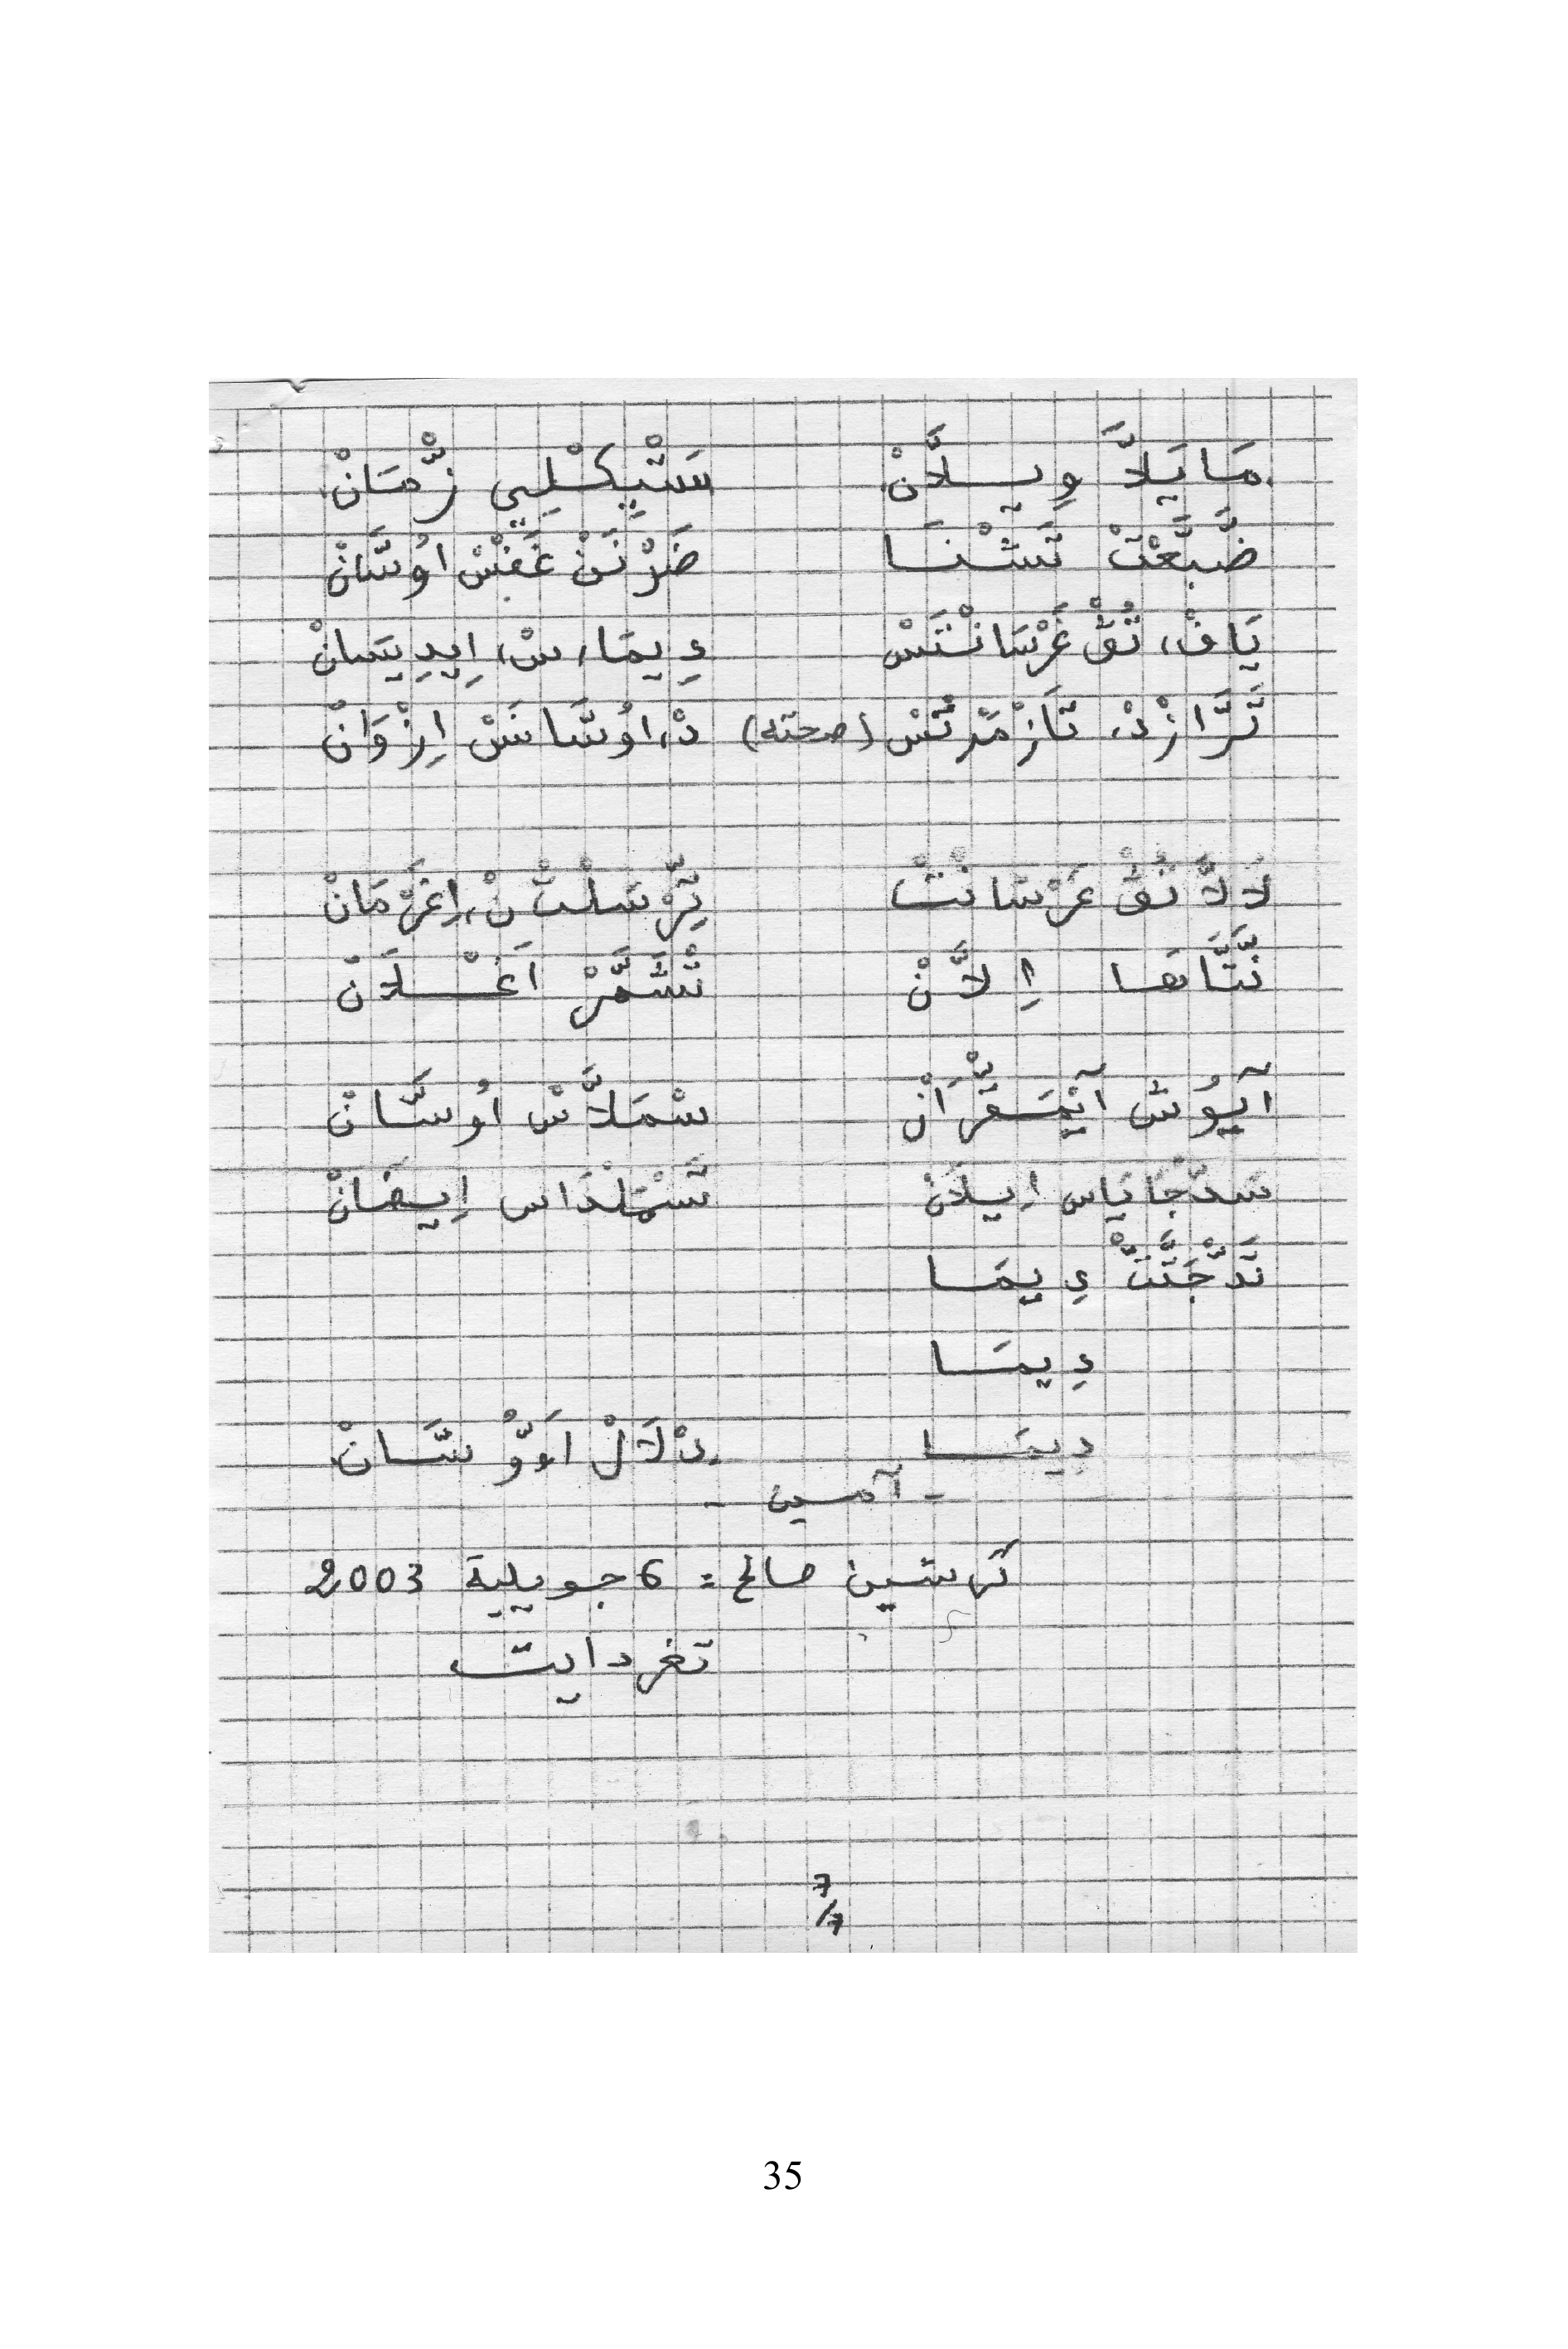 مَا يَلاَّ وِيلاَّنْ سَتْيكْلِيي زّْمَانْ
ضَبَّعْتْ تَشْنَا ضَرْنَنْ غَفْسْ اوُسَّانْ
يَافْ، تُقْ غَرْسَانْتَسْ دِيمَا، سْ، اِيدِيسَانْ
تَرَّازْدْ، تَازْمَرْتَسْ (صحته) دْ، اوُسَّانَسْ اِزْوَانْ
لاَلاَّ تُقْ غَرْسَانْتْ تِرْسَلْتْ نْ، اِغَرْمَانْ
نَتَّاهَا اِلاَّنْ تْشَمَّرْ اَغْلاَنْ
آيُوشْ آيْمَقّْرَانْ سْمَلاَّسْ اُوسَّانْ
سَدّْجَايَاس اِيلاَنْ سَّمْلَدَاس اِيضَانْ
تَدّْجَتَّتْ دِيمَا
دِيمَا
دِيمَا دْلاَلْ اَوُّوسَّانْ
- آمسين -
ترشين صالح : 6 جويلية 2003
تغردايت
7/7
35